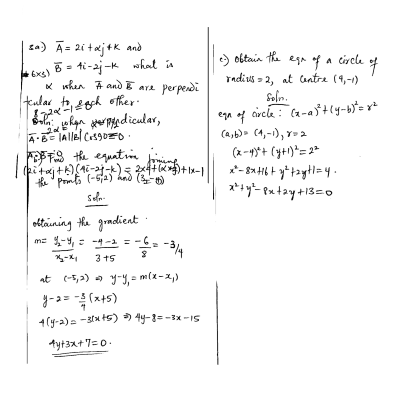 3a) A = 2i + αj + k and
B = 4i - 2j - k what is
α when A and B are perpendi
cular to each other.
Soln. when perpendicular,
A·B = |A||B| Cos90 = 0
(2i + αj + k)(4i - 2j - k) = 2x4 + (αx-2) + 1x-1
8 - 2α - 1 = 0
the equation joining
the points (-5,2) and (3,-4)
Soln.
obtaining the gradient
m = y₂-y₁/x₂-x₁ = -4-2/3+5 = -6/8 = -3/4
at (-5,2) ⇒ y-y₁ = m(x-x₁)
y-2 = -3/4 (x+5)
4(y-2) = -3(x+5) ⇒ 4y-8 = -3x-15
4y+3x+7 = 0.
c) Obtain the eqn of a circle of
radius = 2, at centre (4,-1)
Soln.
eqn of circle: (x-a)²+(y-b)² = r²
(a,b) = (4,-1), r = 2
(x-4)²+(y+1)² = 2²
x²-8x+16+y²+2y+1 = 4.
x²+y²-8x+2y+13 = 0